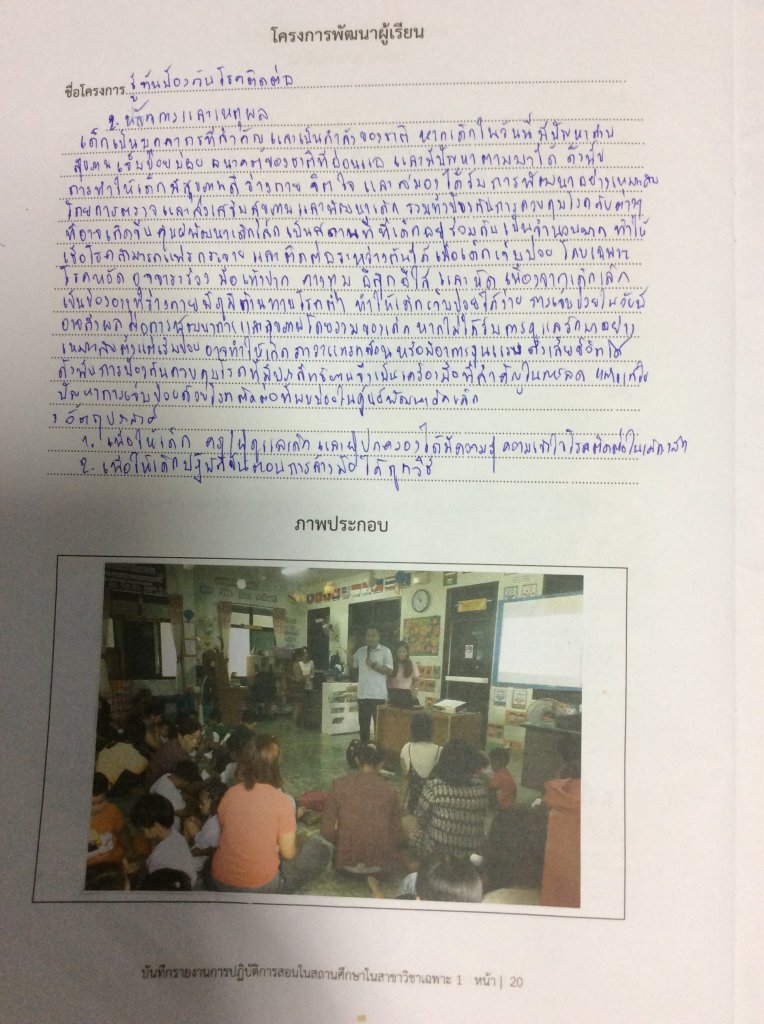 โครงการพัฒนาผู้เรียน
ชื่อโครงการ รู้ทันป้องกันโรคติดต่อ
2. หลักการและเหตุผล
เด็กเป็นบุคลากรที่สำคัญ และเป็นกำลังของชาติ หากเด็กในวันนี้มีปัญหาด้าน
สุขภาพ เจ็บป่วยบ่อย อนาคตของชาติที่อ่อนแอ และมีปัญหาตามมาได้ ดังนั้น
การทำให้เด็กมีสุขภาพดี ร่างกาย จิตใจ และสมอง ได้รับการพัฒนาอย่างเหมาะสม
โดยการตรวจ และส่งเสริมสุขภาพและพัฒนาเด็ก รวมทั้งป้องกันการควบคุมโรคภัยต่างๆ
ที่อาจเกิดขึ้น ศูนย์พัฒนาเด็กเล็ก เป็นสถานที่ที่เด็กอยู่ร่วมกันเป็นจำนวนมาก ทำให้
เชื้อโรคสามารถแพร่กระจาย และติดต่อระหว่างกันได้ เมื่อเด็กเจ็บป่วย โดยเฉพาะ
โรคหวัด อุจจาระร่วง มือเท้าปาก คางทูม อีสุกอีใส และหัด เนื่องจากเด็กเล็ก
เป็นช่วงอายุที่ร่างกายมีภูมิต้านทานโรคต่ำ ทำให้เด็กเจ็บป่วยได้ง่าย การเจ็บป่วยในวัยนี้
อาจส่งผลต่อการพัฒนาการและสุขภาพโดยรวมของเด็ก หากไม่ได้รับการดูแลรักษาอย่าง
เหมาะสมตั้งแต่เริ่มป่วย อาจทำให้เกิดภาวะแทรกซ้อน หรือมีอาการรุนแรง ถึงเสียชีวิตได้
ดังนั้นการป้องกันควบคุมโรคที่มีประสิทธิภาพจึงเป็นเครื่องมือที่สำคัญในการลด และแก้ไข
ปัญหาการเจ็บป่วยด้วยโรคติดต่อที่พบบ่อยในศูนย์พัฒนาเด็กเล็ก
3 วัตถุประสงค์
1. เพื่อให้เด็ก ครูผู้ดูแลเด็ก และผู้ปกครองได้มีความรู้ ความเข้าใจโรคติดต่อในเด็ก
2. เพื่อให้เด็กปฏิบัติขั้นตอนการล้างมือได้ถูกวิธี
ภาพประกอบ
บันทึกรายงานการปฏิบัติการสอนในสถานศึกษาในสาขาวิชาเฉพาะ 1 หน้า | 20